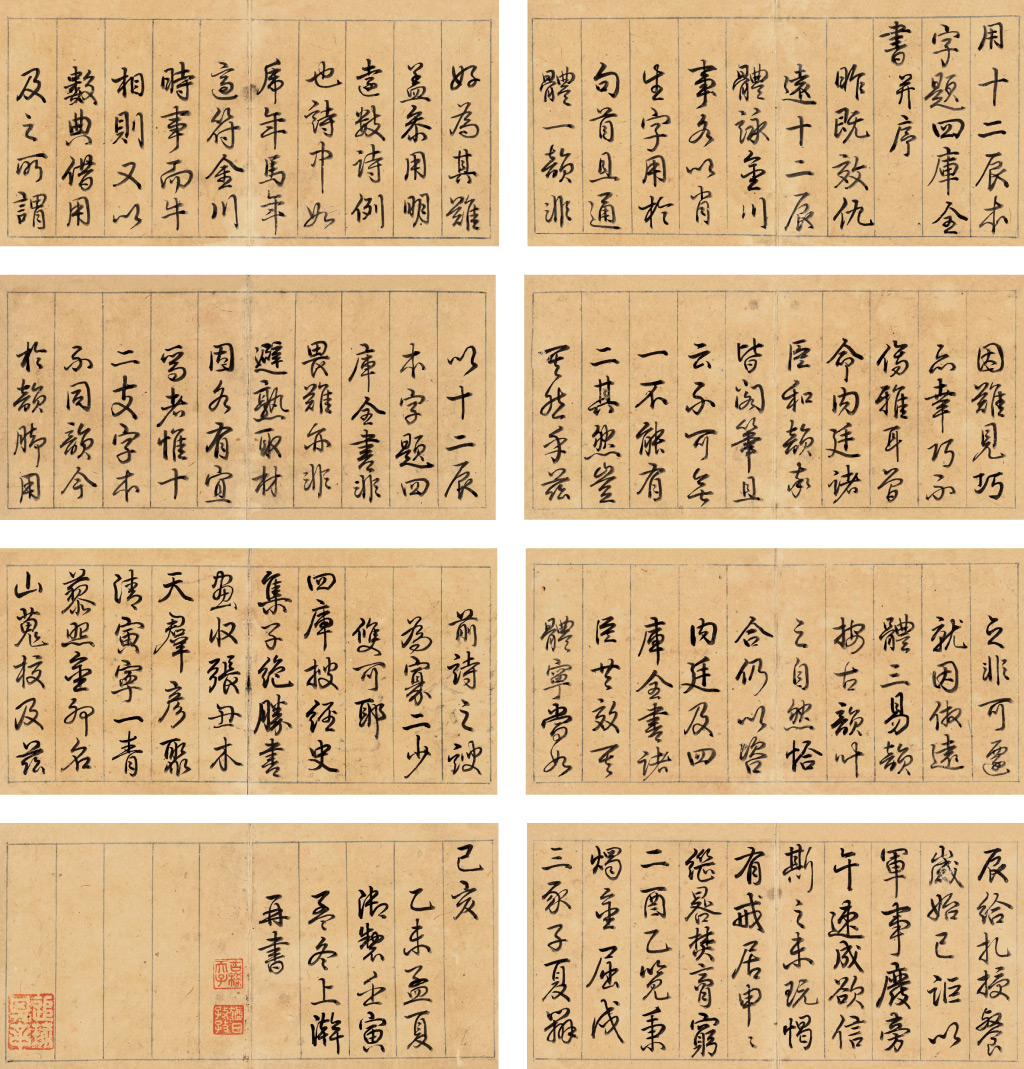 用十二辰本
字題四庫全
書并序
昨既效仇
遠十二辰
體詠金川
事各以肖
生字用於
句首且通
體一韻非
好為其難
蓋叅用明
遠數詩例
也詩中如
虎年馬年
適符金川
時事而牛
相則又以
數典借用
及之所謂
因難見巧
亦幸巧不
傷雅耳曾
命內廷諸
臣和韻率
皆閣筆且
云不可無
一不能有
二其然豈
其然乎茲
以十二辰
本字題四
庫全書非
畏難亦非
避熟取材
固各有宜
焉者惟十
二支字本
不同韻今
於韻腳用
之非可遽
就因倣遠
體三易韻
按古韻叶
之自然恰
合仍以咨
內廷及四
庫全書諸
臣共效其
體寧當如
前詩之謏
為寡二少
雙可耶
四庫搜經史
集子絕勝書
畫收張丑木
天羣彥聚
清寅寧一青
藜照金卯名
山蒐校及茲
辰給札授餐
歲始巳詎以
軍事廢旁
午速成欲信
斯之未玩愒
有戒居申〻
繼晷焚膏窮
二酉乙覽秉
燭金屈戌
三豕子夏辨
己亥
乙未孟夏
御製壬寅
孟冬上澣
再書
古稀天子
猶日孜孜